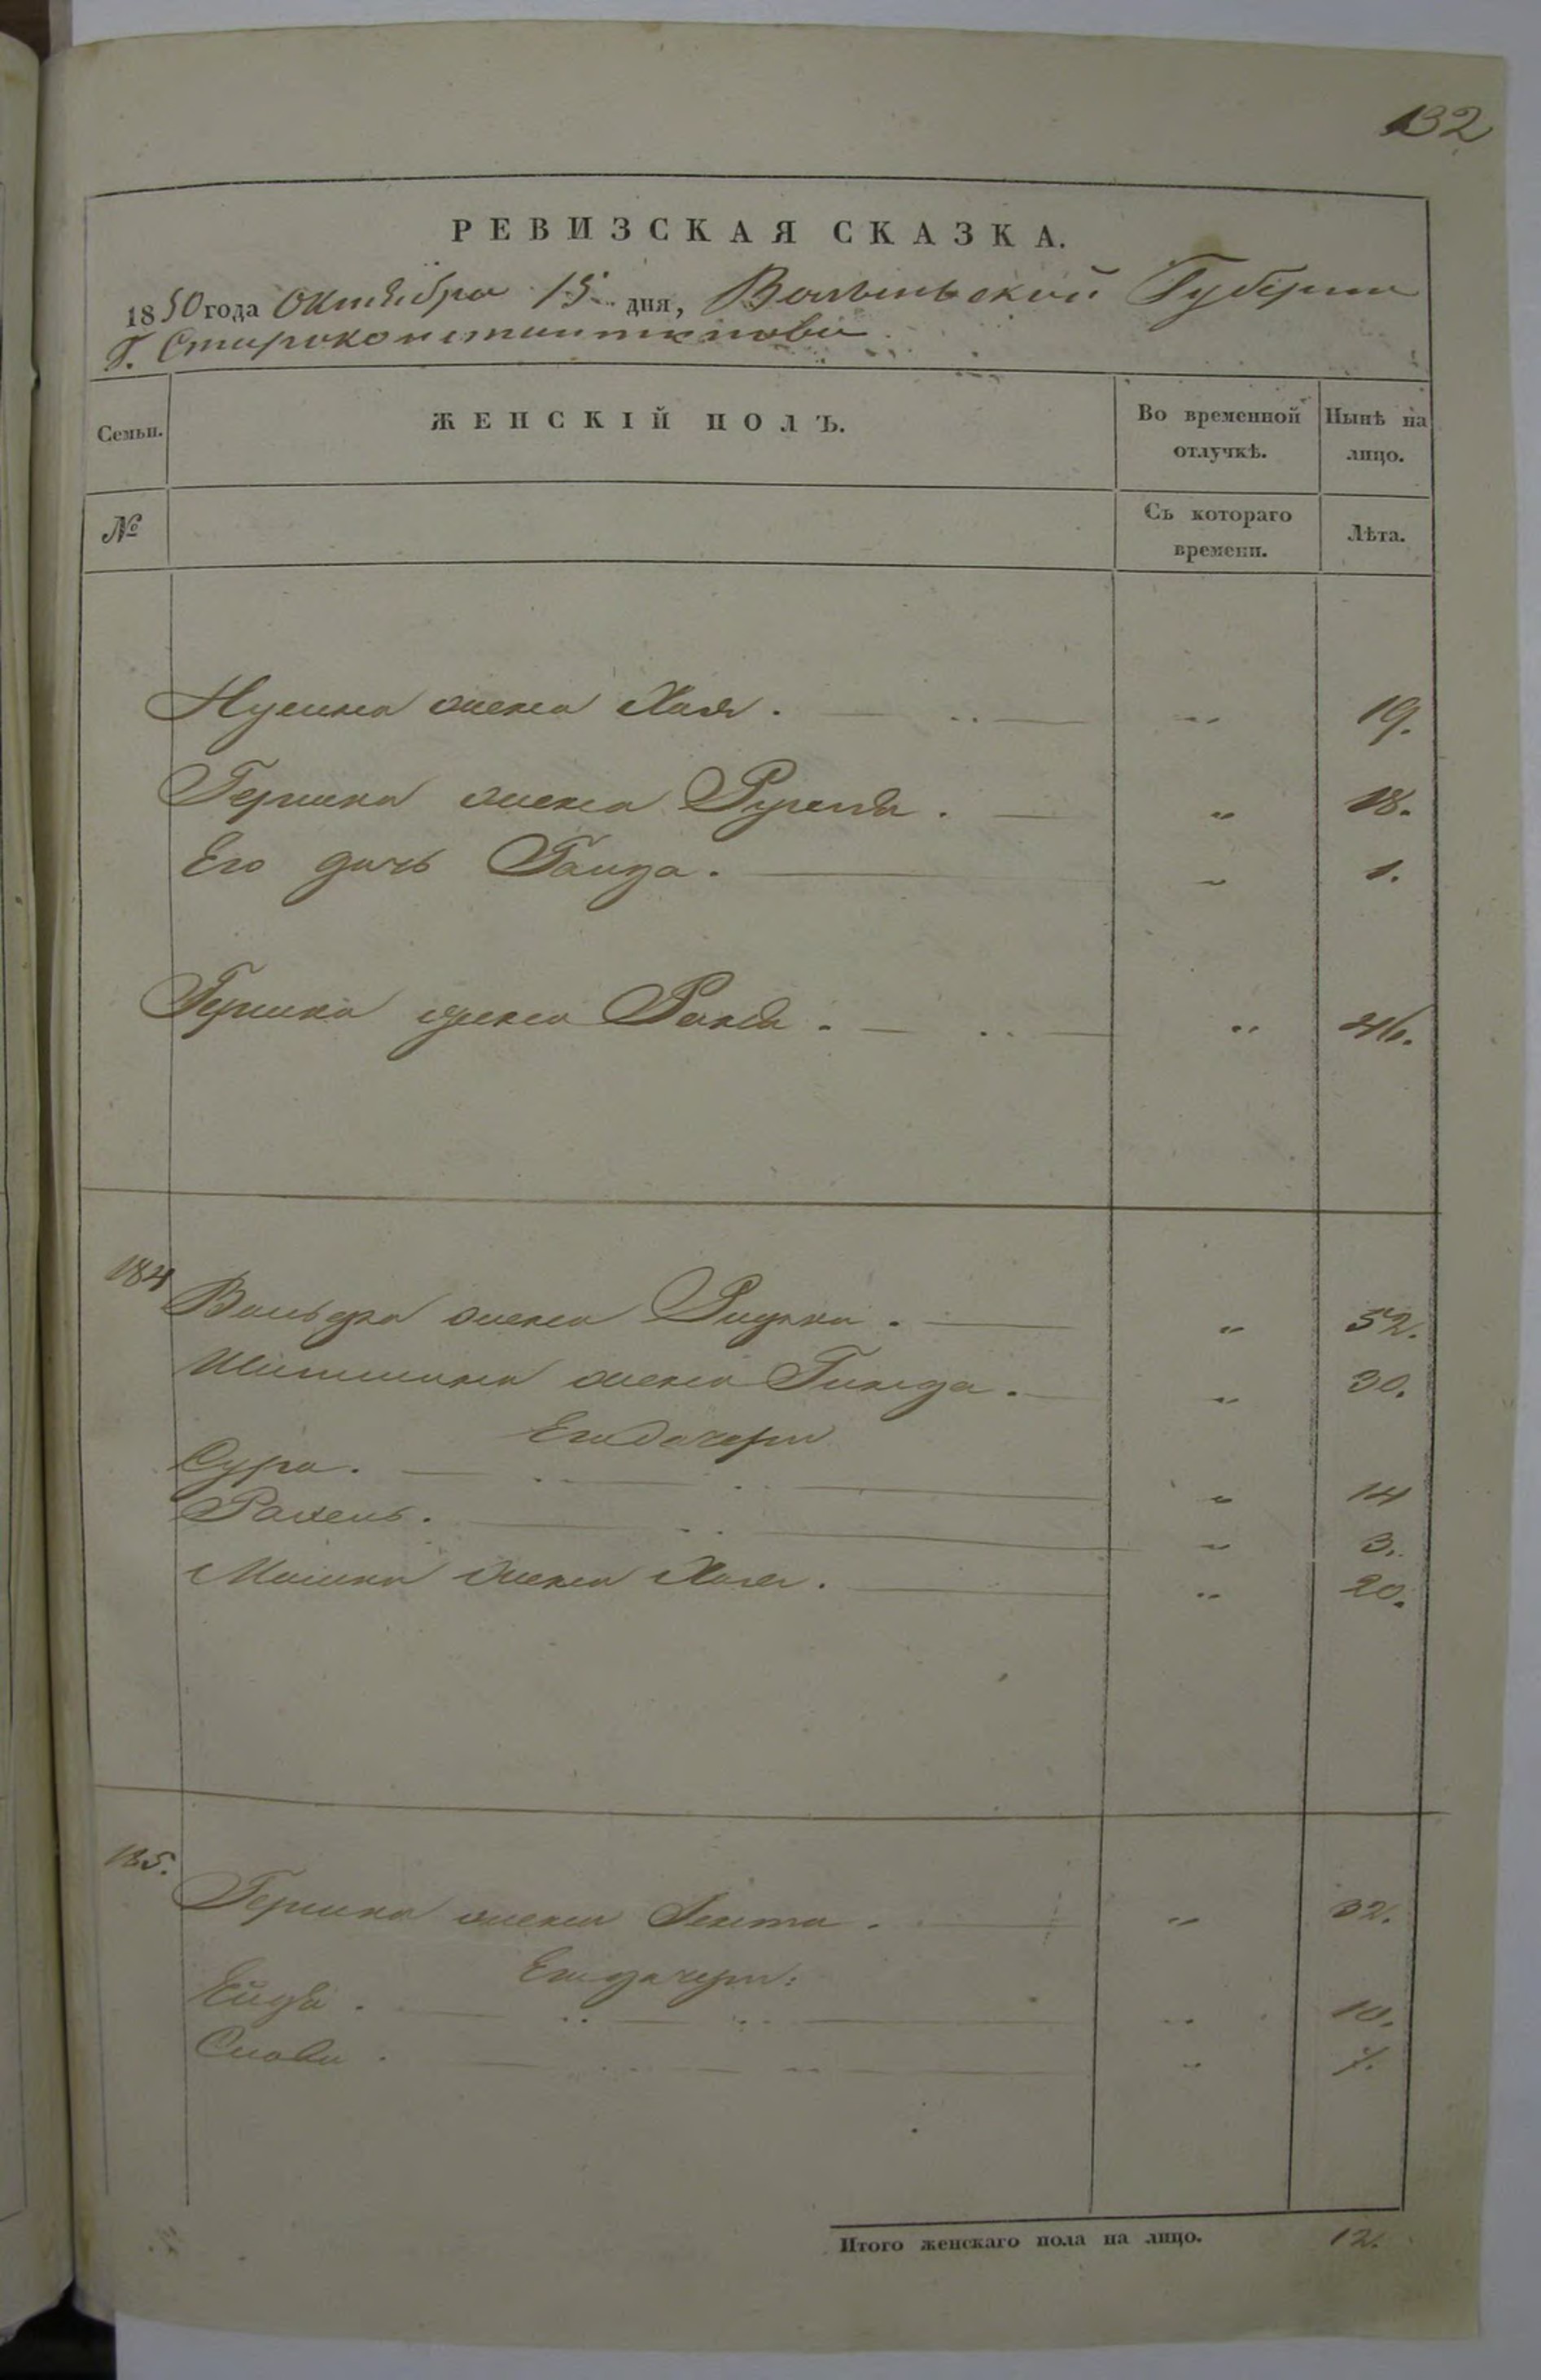 132
РЕВИЗСКАЯ СКАЗКА.
1850 года Октября 15 дня, Волынской Губернии
Г. Староконстантинова
Семьи. ЖЕНСКІЙ ПОЛЪ. Во временной отлучкѣ. Нынѣ на лицо.
№ Съ котораго времени. Лѣта.
жена Хая. 19.
Гершка жена 18.
Его дочь 1.
Гершка жена 46.
184
Вольфа жена Ривка. 52.
жена Гинда. 30.
Его дочери
Сура. 14
Рахель. 3.
Мошка жена Хая. 20.
185.
Гершка жена 32.
Его дочери:
10.
7.
Итого женскаго пола на лицо. 12.